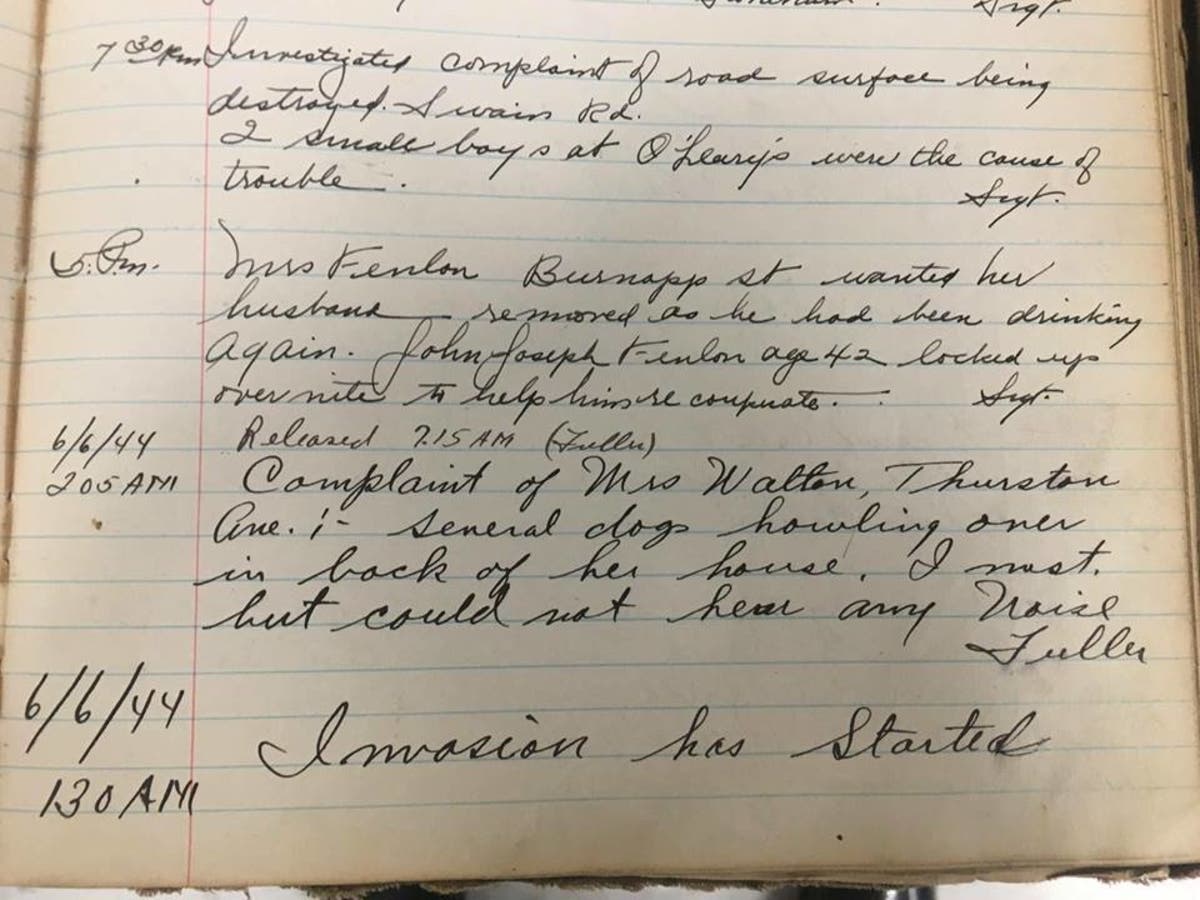 Srgt.
7 30 Pm Investigated complaint of road surface being
destroyed. Swain Rd.
2 small boys at O'Leary's were the cause of
trouble.
Srgt.
5. Pm. Mrs Fenlon Burnapp st wanted her
husband removed as he had been drinking
again. John Joseph Fenlon age 42 locked up
over nite to help him recouperate.
Srgt.
6/6/44 Released 7.15 AM (Fuller)
205 AM Complaint of Mrs Walton, Thurston
Ave. :- several dogs howling over
in back of her house. I
but could not hear any Noise
Fuller
6/6/44
Invasion has Started
130 AM